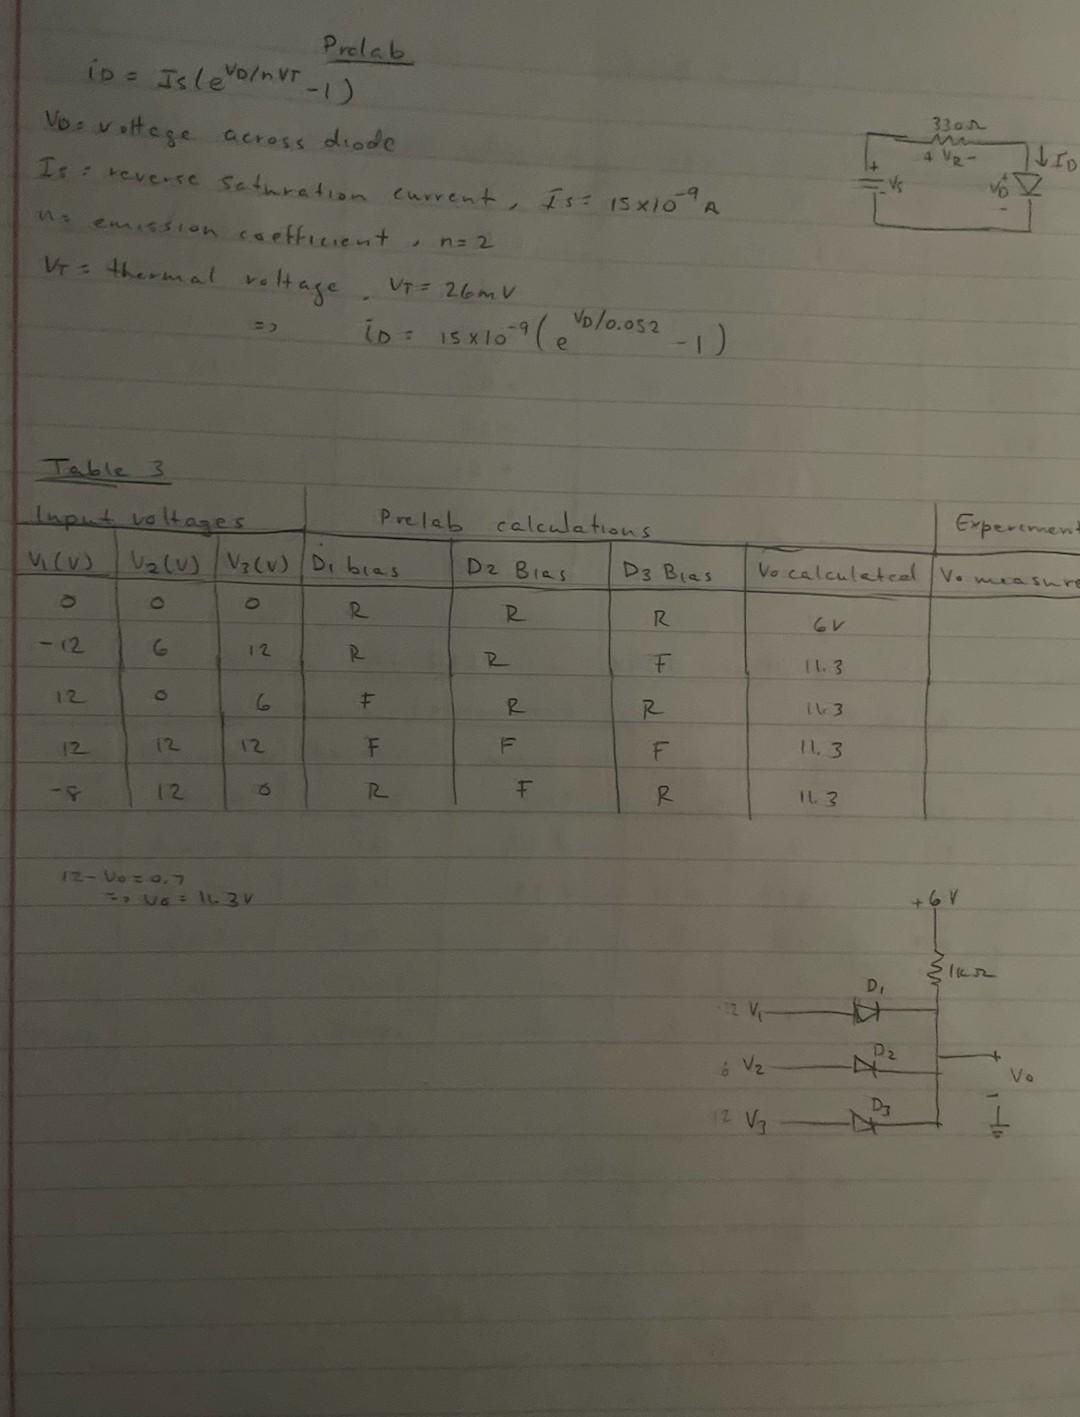 Prelab
iD = Is(e^VD/nVT -1)
VD= voltage across diode
Is = reverse saturation current, Is= 15x10^-9 A
n= emission coefficient, n=2
VT = thermal voltage, VT= 26mV
=> iD = 15x10^-9(e^VD/0.052 -1)
330Ω
+ VR -
↓ID
+
- VS
VD +
-
Table 3
Input voltages Prelab calculations Experiment
V1(V) V2(V) V3(V) D1 bias D2 Bias D3 Bias Vo calculated Vo measure
0 0 0 R R R 6V
-12 6 12 R R F 11.3
12 0 6 F R R 11.3
12 12 12 F F F 11.3
-8 12 0 R F R 11.3
12-Vo=0.7
=> Vo = 11.3V
+6V
1kΩ
D1
V1
D2
6 V2
+
Vo
-
D3
12 V3